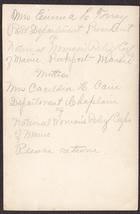 Mrs Emma L
Past Department President
of
National Woman's Relief Corps
of Maine Rockport - Maine
Mother
Mrs Carrie
Department Chaplain
of
National Woman's Relief Corps
of Maine
Please return